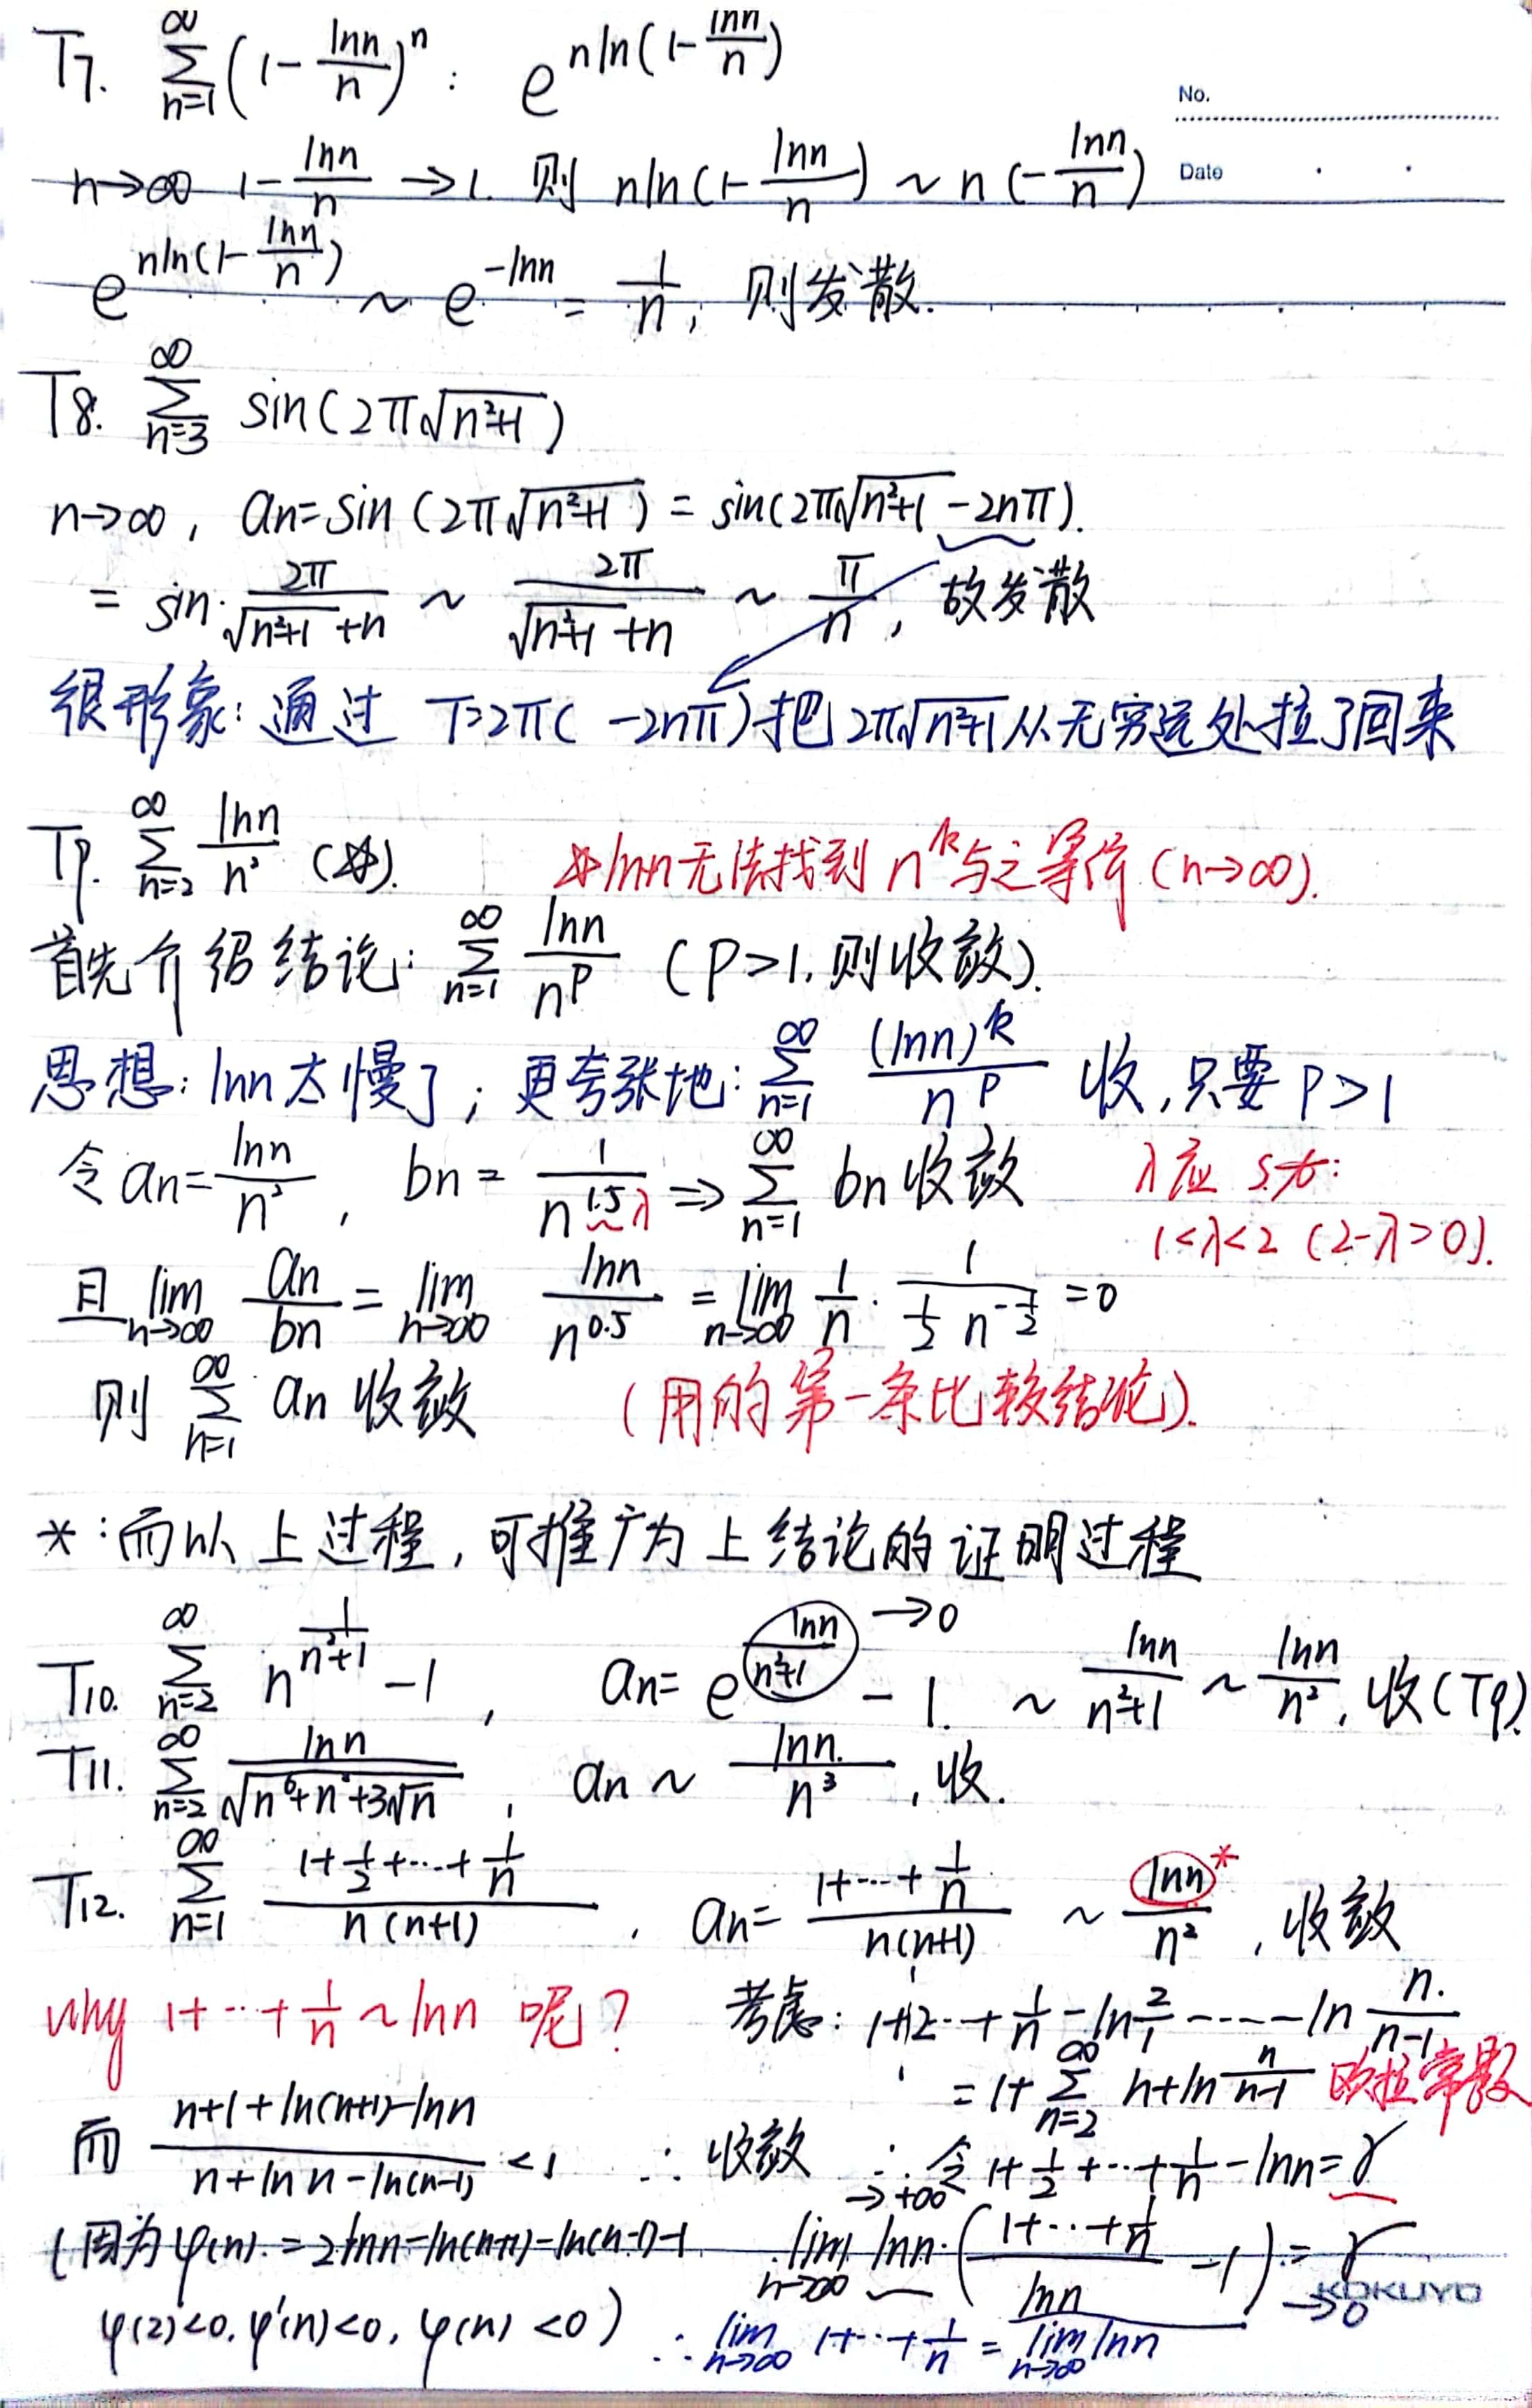 T7. ∑_{n=1}^{∞} (1 - lnn/n)^n : e^{nln(1 - lnn/n)}
No.
n→∞ 1 - lnn/n → 1. 则 nln(1 - lnn/n) ~ n(-lnn/n)
Date
e^{nln(1 - lnn/n)} ~ e^{-lnn} = 1/n, 则发散.
T8. ∑_{n=3}^{∞} sin(2π√(n²+1))
n→∞, an = sin(2π√(n²+1)) = sin(2π√(n²+1) - 2nπ).
= sin 2π/(√(n²+1)+n) ~ 2π/(√(n²+1)+n) ~ π/n, 故发散
很形象: 通过 T=2π( -2nπ) 把 2π√(n²+1) 从无穷远处拉了回来
T9. ∑_{n=2}^{∞} lnn/n² (※). ※lnn无法找到 n^k 与之等价 (n→∞).
首先介绍结论: ∑_{n=1}^{∞} lnn/n^p (P>1, 则收敛).
思想: lnn太慢了; 更夸张地: ∑_{n=1}^{∞} (lnn)^k/n^p 收, 只要 P>1
令 an = lnn/n², bn = 1/n^{1.5} λ ⇒ ∑_{n=1}^{∞} bn 收敛 λ应
1<λ<2 (2-λ>0).
且 lim_{n→∞} an/bn = lim_{n→∞} lnn/n^{0.5} = lim_{n→∞} 1/n · 1/(1/2 n^{-1/2}) = 0
则 ∑_{n=1}^{∞} an 收敛 (用的第一条比较结论).
*: 而以上过程, 可推广为上结论的证明过程
T10. ∑_{n=2}^{∞} n^{1/(n²+1)} - 1, an = e^{lnn/(n²+1)} →0 - 1. ~ lnn/(n²+1) ~ lnn/n², 收(T9).
T11. ∑_{n=2}^{∞} lnn/√(n⁶+n²+3√n), an ~ lnn/n³, 收.
T12. ∑_{n=1}^{∞} (1+1/2+…+1/n)/(n(n+1)), an = (1+…+1/n)/(n(n+1)) ~ lnn*/n², 收敛
why 1+…+1/n ~ lnn 呢? 考虑: 1+1/2…+1/n - ln2/1 - …… - ln n/(n-1)
= 1+∑_{n=2}^{∞} n+ln n/(n-1) 欧拉常数
而 (n+1+ln(n+1)-lnn)/(n+lnn-ln(n-1)) < 1 ∴ 收敛 ∴ 令 1+1/2+…+1/n - lnn = γ
→+∞
(因为φ(n) = 2lnn-ln(n+1)-ln(n-1)-1 lim_{n→∞} lnn·((1+…+1/n)/lnn - 1) = γ
→0
KOKUYO
φ(2)<0, φ'(n)<0, φ(n)<0) ∴ lim_{n→∞} 1+…+1/n = lim_{n→∞} lnn